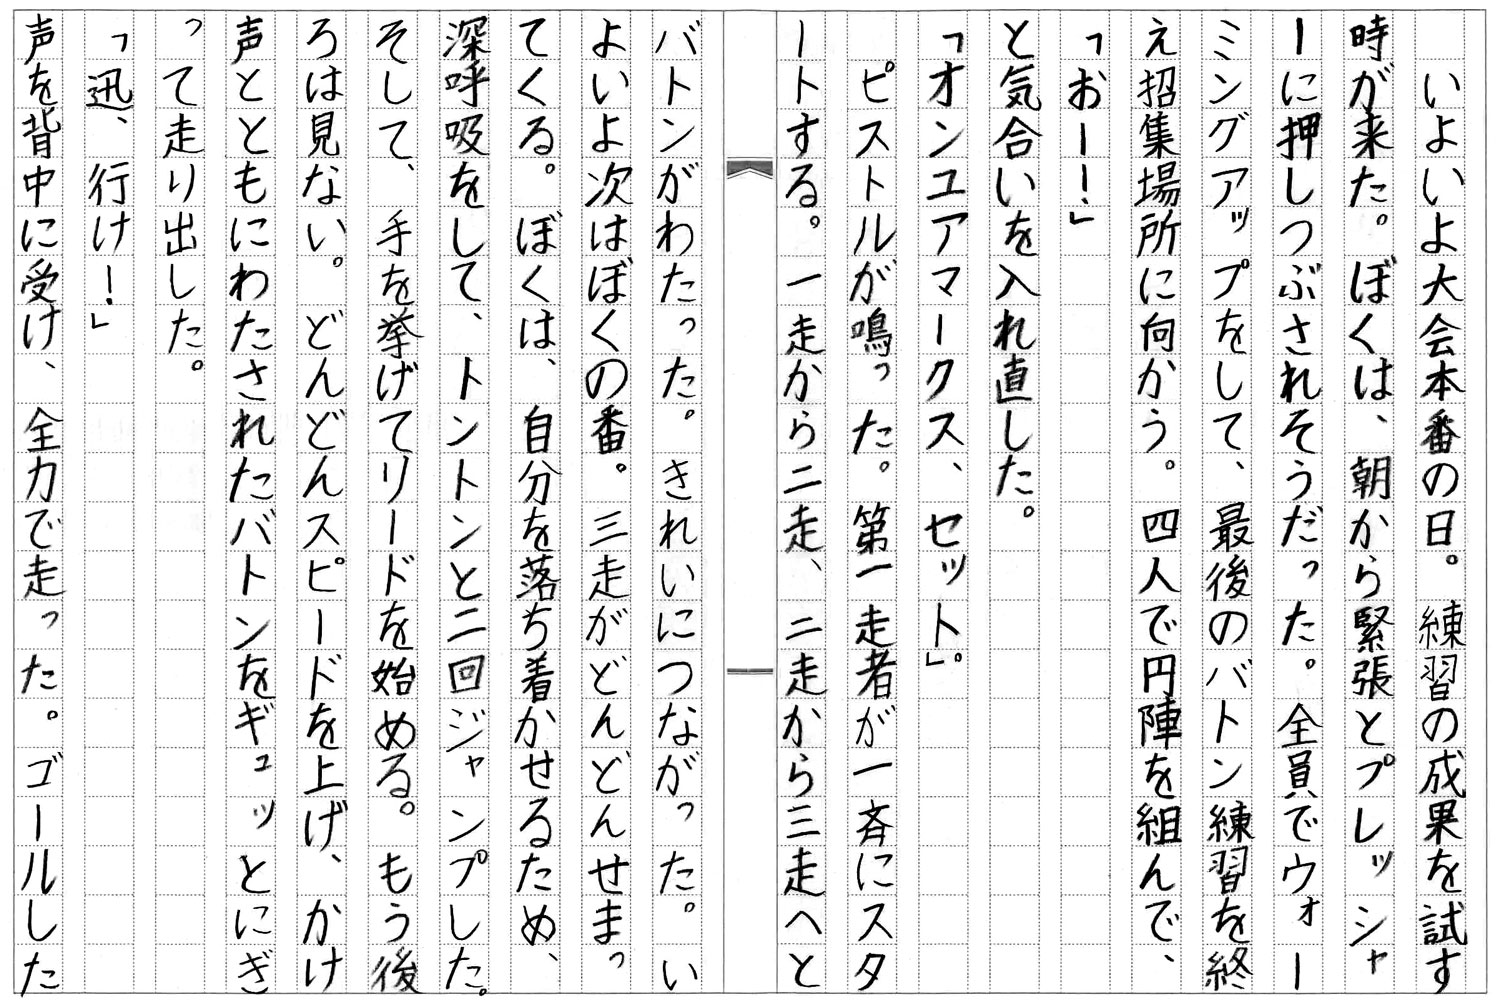 いよいよ大会本番の日。練習の成果を試す
時が来た。ぼくは、朝から緊張とプレッシャ
ーに押しつぶされそうだった。全員でウォー
ミングアップをして、最後のバトン練習を終
え招集場所に向かう。四人で円陣を組んで、
「おー！」
と気合いを入れ直した。
「オンユアマークス、セット」。
　ピストルが鳴った。第一走者が一斉にスタ
ートする。一走から二走、二走から三走へと
バトンがわたった。きれいにつながった。い
よいよ次はぼくの番。三走がどんどんせまっ
てくる。ぼくは、自分を落ち着かせるため、
深呼吸をして、トントンと二回ジャンプした。
そして、手を挙げてリードを始める。もう後
ろは見ない。どんどんスピードを上げ、かけ
声とともにわたされたバトンをギュッとにぎ
って走り出した。
「迅、行け！」
声を背中に受け、全力で走った。ゴールした